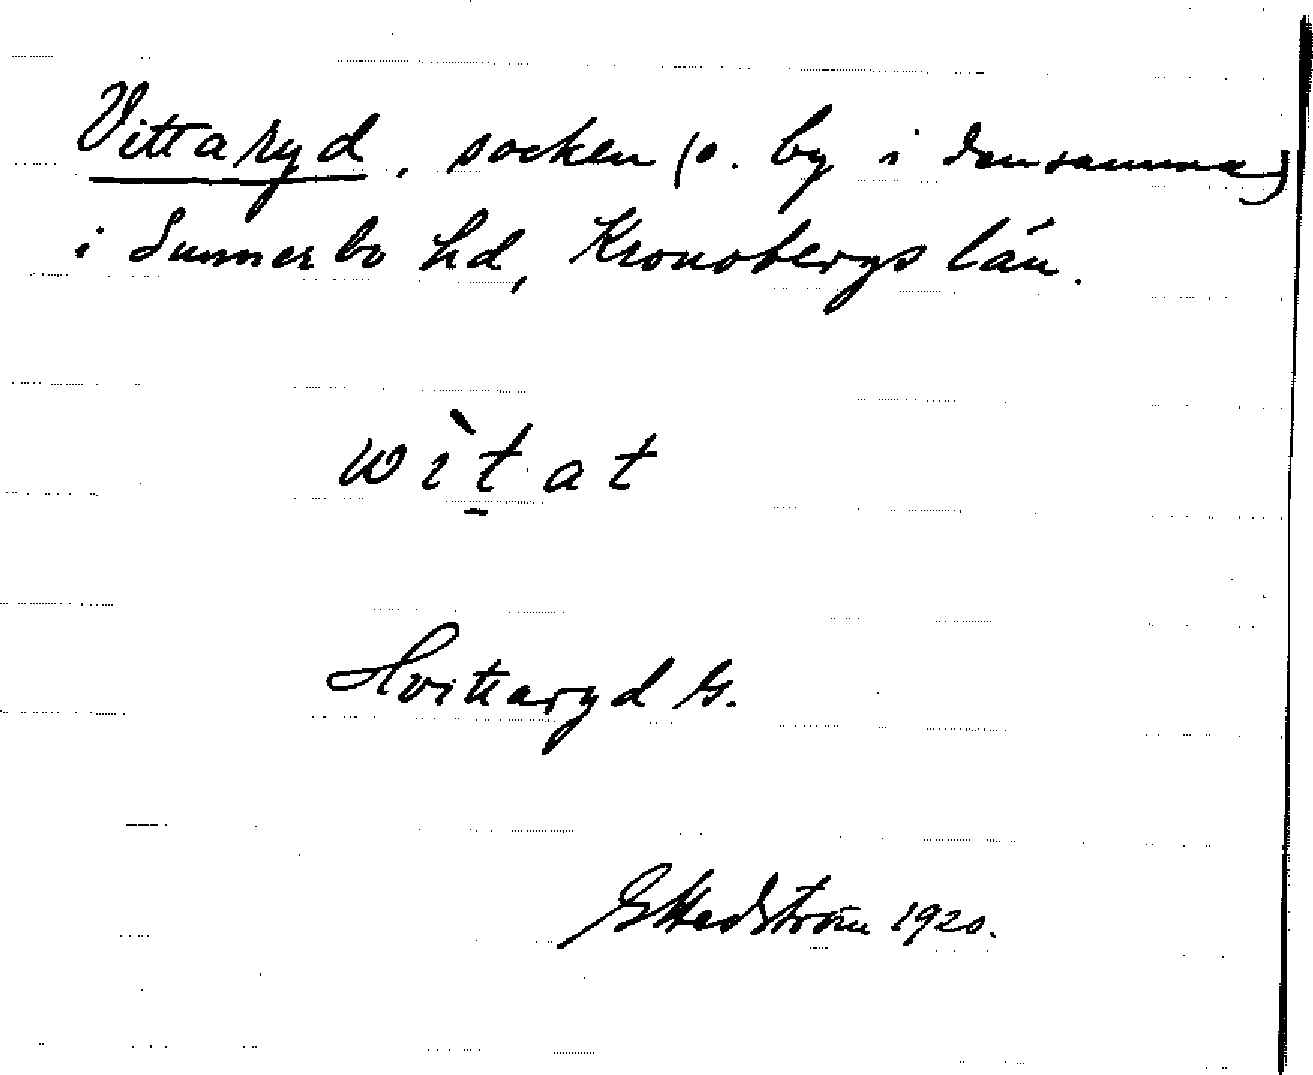 Vittaryd, socken (o. by i densamma)
i Sunnerbo hd, Kronobergs län.
wìt̠at
Hvittaryd G.
G Hedström 1920.